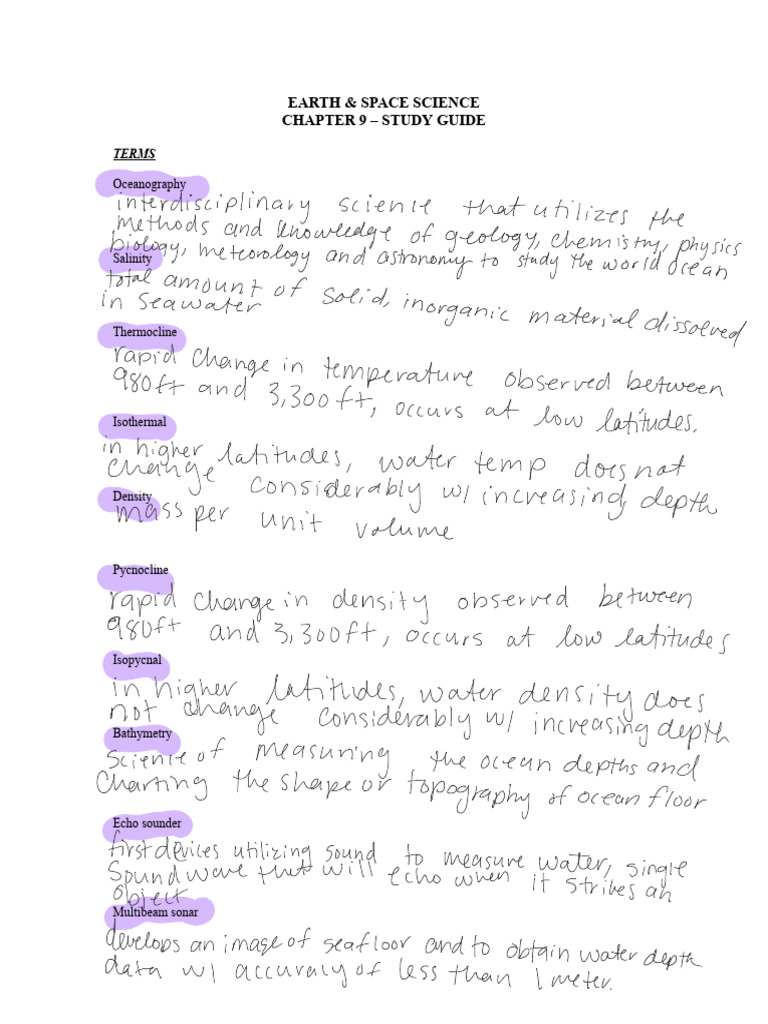 EARTH & SPACE SCIENCE
CHAPTER 9 – STUDY GUIDE
TERMS
Oceanography
interdisciplinary science that utilizes the
methods and knowledge of geology, chemistry, physics
biology, meteorology and astronomy to study the world ocean
Salinity
total amount of solid, inorganic material dissolved
in seawater
Thermocline
rapid change in temperature observed between
980ft and 3,300ft, occurs at low latitudes.
Isothermal
in higher latitudes, water temp does not
change considerably w/ increasing depth
Density
mass per unit volume
Pycnocline
rapid change in density observed between
980ft and 3,300ft, occurs at low latitudes
Isopycnal
in higher latitudes, water density does
not change considerably w/ increasing depth
Bathymetry
science of measuring the ocean depths and
charting the shape or topography of ocean floor
Echo sounder
first devices utilizing sound to measure water, single
sound wave that will echo when it strikes an
object
Multibeam sonar
develops an image of seafloor and to obtain water depth
data w/ accuracy of less than 1 meter.